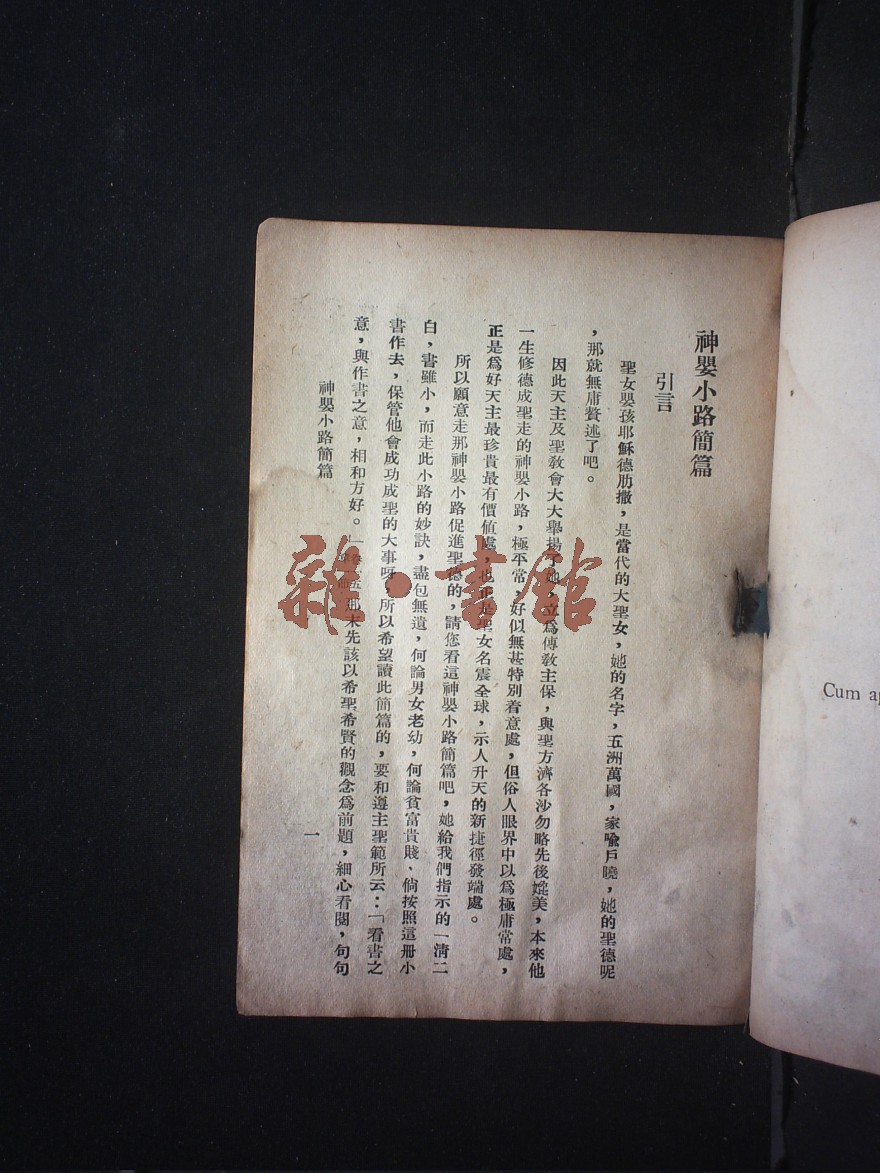 神嬰小路簡篇
引言
聖女嬰孩耶穌德肋撒，是當代的大聖女，她的名字，五洲萬國，家喩戶曉，她的聖德呢
，那就無庸贅述了吧。
因此天主及聖敎會大大舉揚了她，立爲傳敎主保，與聖方濟各沙勿略先後媲美，本來他
一生修德成聖走的神嬰小路，極平常，好似無甚特別着意處，但俗人眼界中以爲極庸常處，
正是爲好天主最珍貴最有價値處，也正是聖女名震全球，示人升天的新捷徑發端處。
所以願意走那神嬰小路促進聖德的，請您看這神嬰小路簡篇吧，她給我們指示的一淸二
白，書雖小，而走此小路的妙訣，盡包無遺，何論男女老幼，何論貧富貴賤、倘按照這册小
書作去，保管他會成功成聖的大事呀，所以希望讀此簡篇的，要和遵主聖範所云：「看書之
意，與作書之意，相和方好。那末先該以希聖希賢的觀念爲前題，細心看閱，句句
神嬰小路簡篇
一
Cum ap
雜·書館